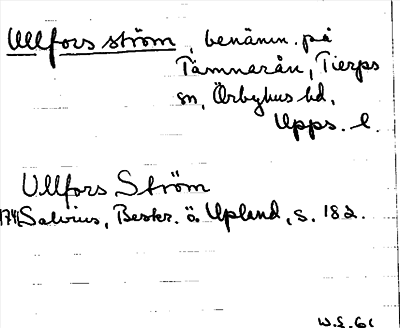 Ullfors ström, benämn. på
Tämnarån, Tierps
sn, Örbyhus hd,
Upps. l.
Ullfors Ström
1741 Salvius, Beskr. ö. Upland, s. 182.